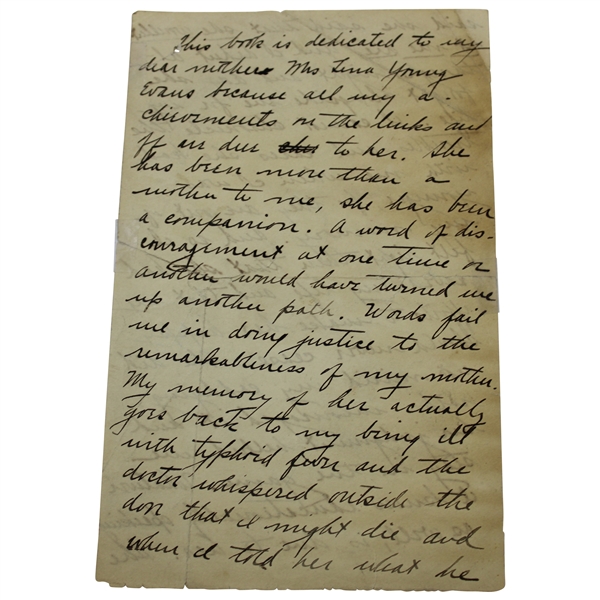 This book is dedicated to my
dear mother Mrs Lena Young
Evans because all my a-
chievements on the links and
off are due to her. She
has been more than a
mother to me, she has been
a companion. A word of dis-
couragement at one time or
another would have turned me
up another path. Words fail
me in doing justice to the
remarkableness of my mother.
My memory of her actually
goes back to my being ill
with typhoid fever and the
doctor whispered outside the
door that I might die and
when I told her what he